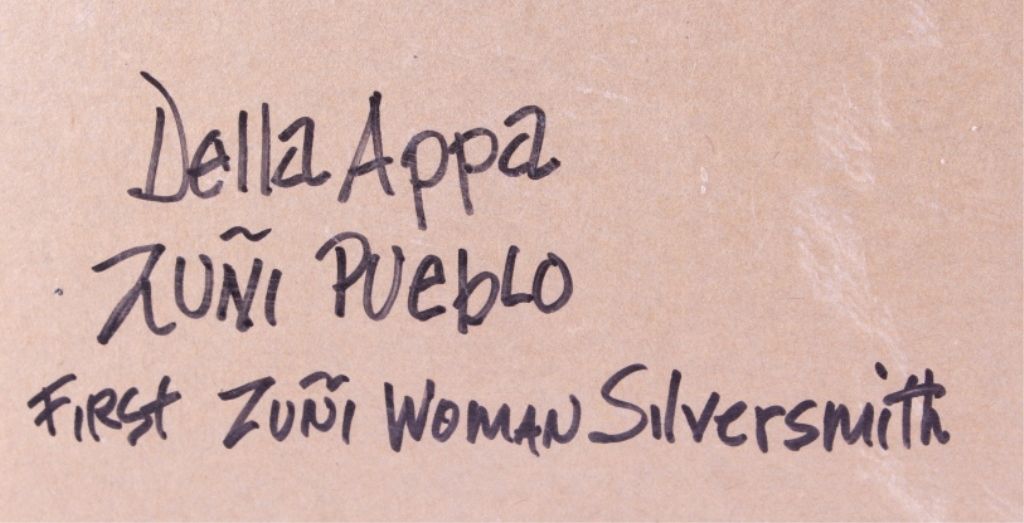 Della Appa
Zuñi Pueblo
First Zuñi Woman Silversmith